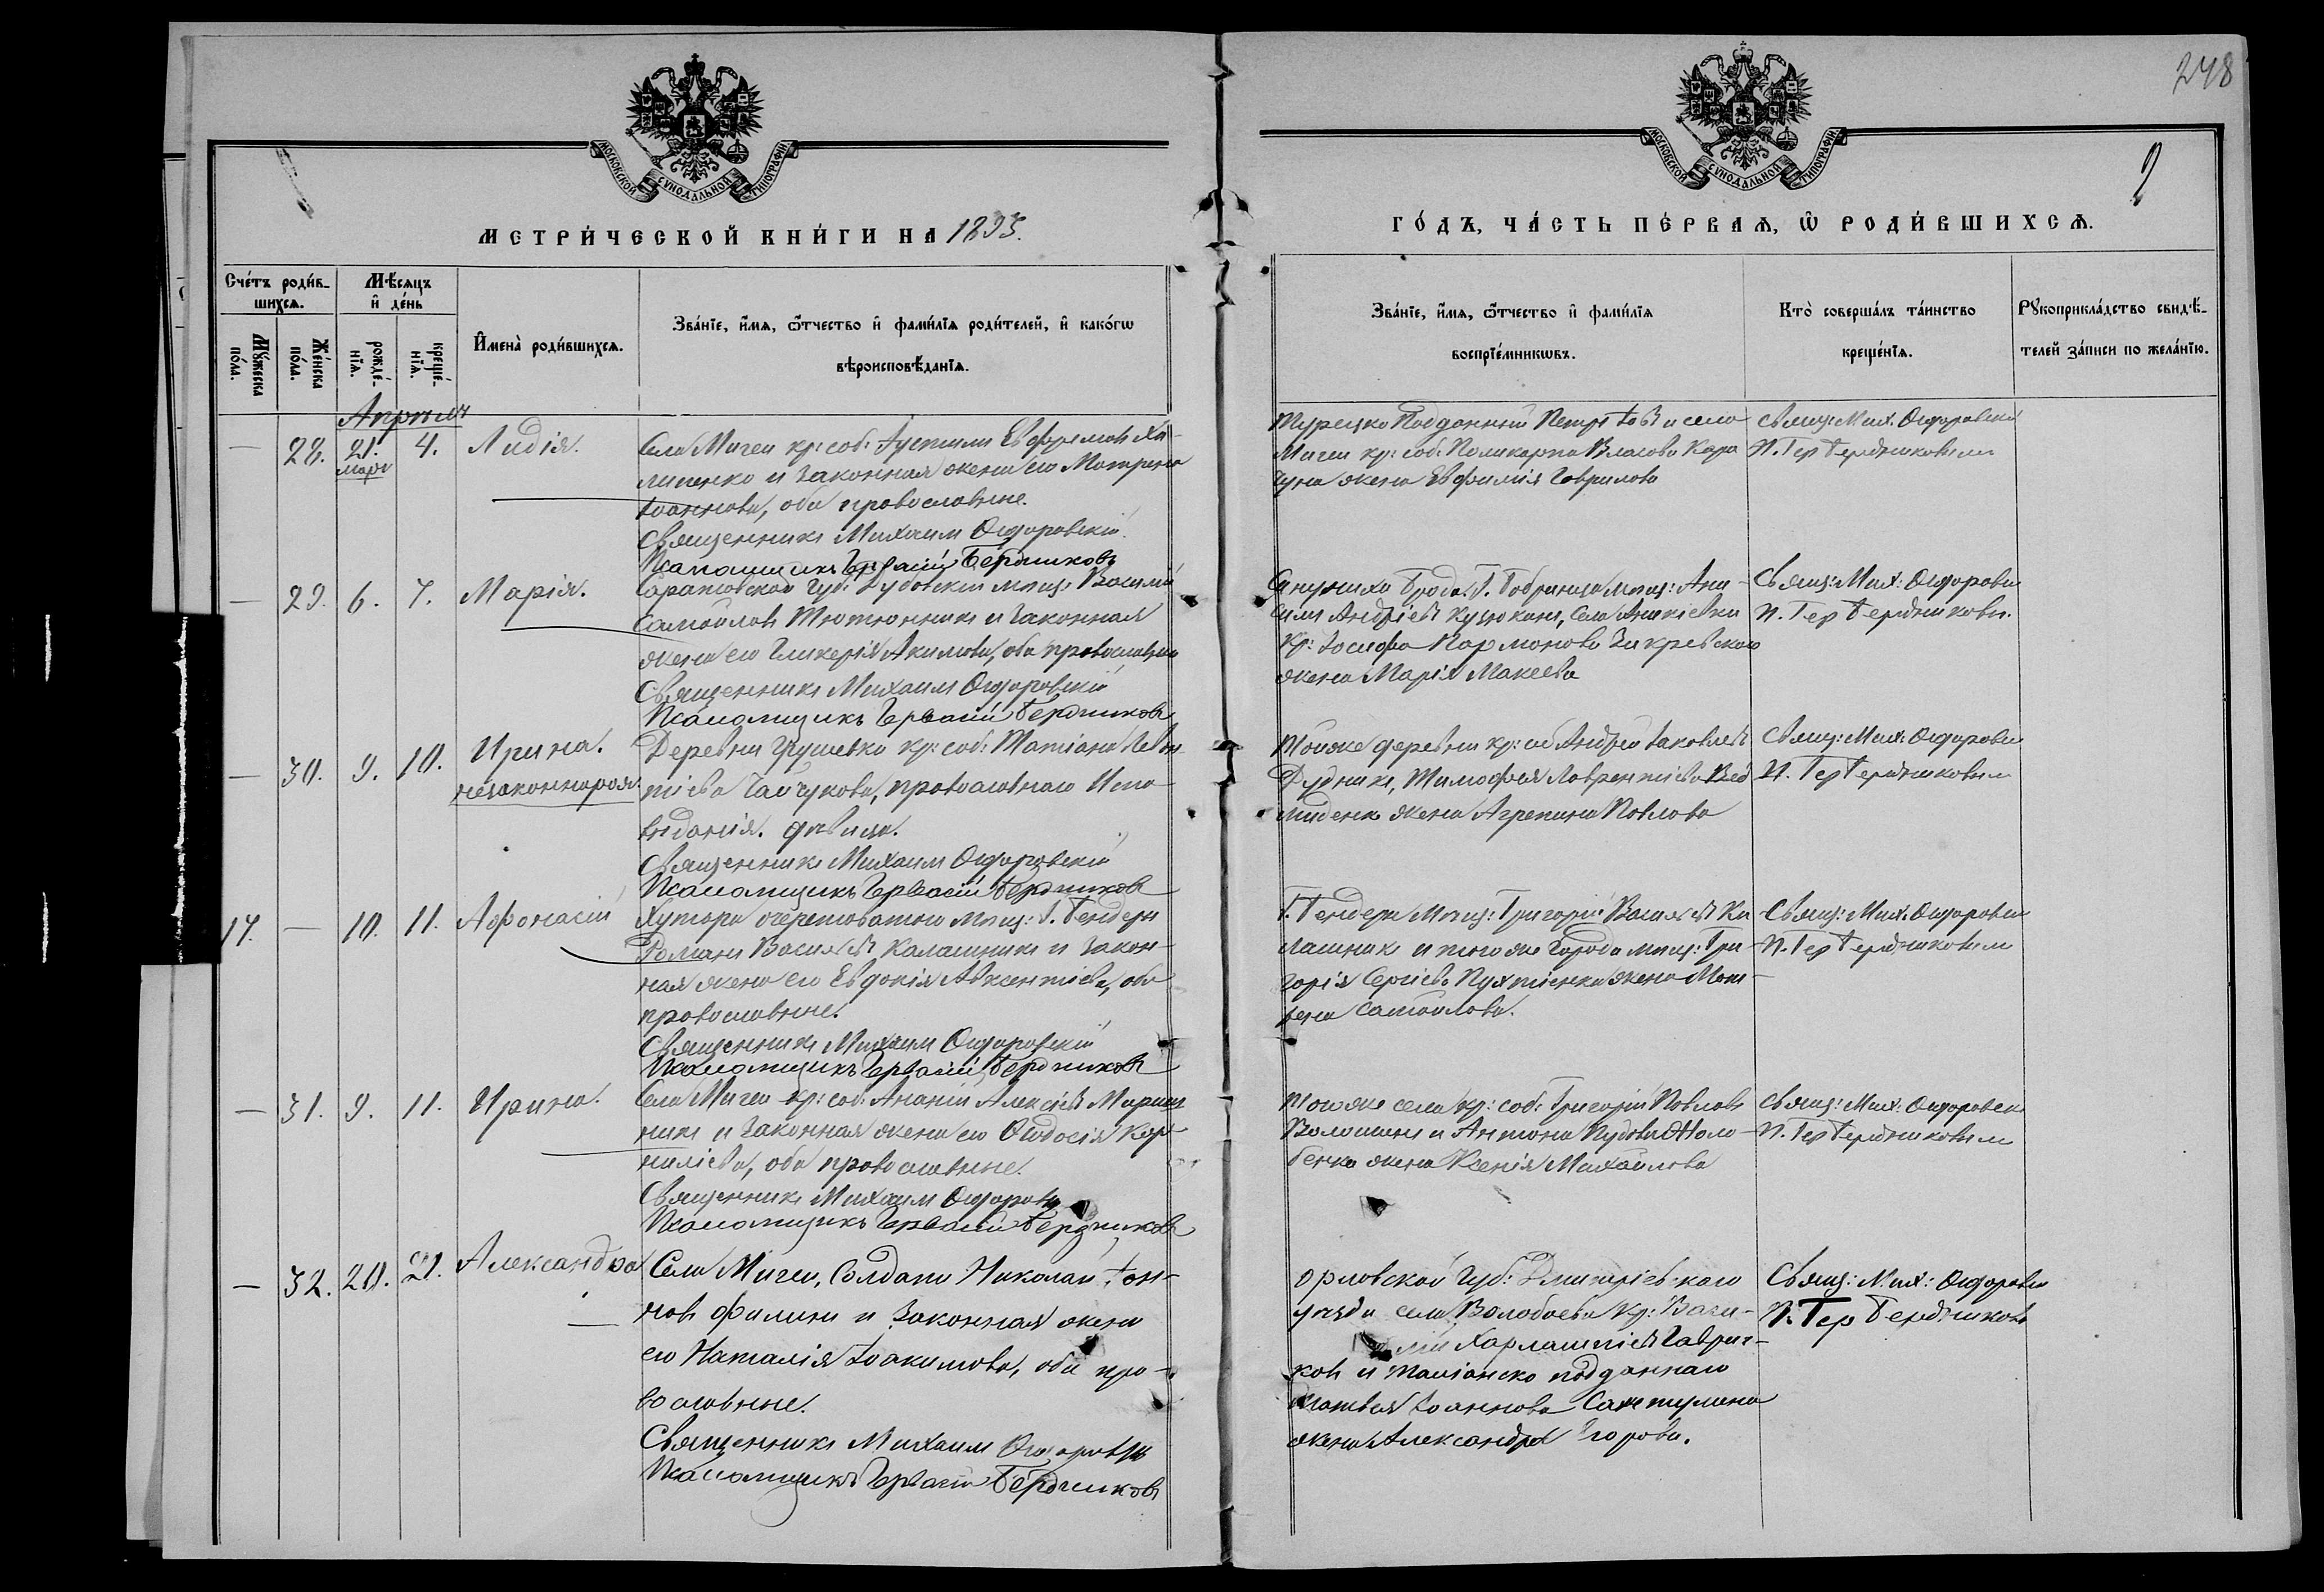 248
2
МОСКОВСКОЙ СѴНОДАЛЬНОЙ ТИПОГРАФІИ
МОСКОВСКОЙ СѴНОДАЛЬНОЙ ТИПОГРАФІИ
МЕТРИ́ЧЕСКОЙ КНИ́ГИ НА 1895.
ГО́ДЪ, ЧА́СТЬ ПЕ́РВАѦ, Ѡ҆ РОДИ́ВШИХСѦ.
Сче́тъ роди́в-
шихсѧ.
Мꙋ́жеска
по́ла.
Же́нска
по́ла.
Мѣ́сѧцъ
и҆ де́нь
рожде́-
нїѧ.
креще́-
нїѧ.
И҆мена̀ роди́вшихсѧ.
Зва́нїе, и҆́мѧ, ѻ҆́тчество и҆ фами́лїѧ роди́телей, и҆ како́гѡ
вѣроисповѣ́данїѧ.
Зва́нїе, и҆́мѧ, ѻ҆́тчество и҆ фами́лїѧ
воспрїе́мникѡвъ.
Кто̀ соверша́лъ та́инство
креще́нїѧ.
Рꙋкоприкла́дство свидѣ́-
телей за́писи по жела́нїю.
Апрѣль
— 28. 21. 4. Лидія.
март
Села Мигеи кр: соб: Евфремовъ Ха-
липенко и законная жена его Матрена
Іоаннова, оба православные.
Священникъ Михаилъ Ѳедоровскій
Псаломщикъ Гервасій Бердниковъ
Турецко Подданный Петръ и села
Мигеи кр: соб: Поликарпа Власова Кара
жена Евфимія Гаврилова
Свящ: Мих. Ѳедоровскій
П. Гер Бердниковымъ
— 29. 6. 7. Марія.
Саратовской губ: Дубовскій мѣщ: Василій
Самойловъ Тютюнникъ и законная
жена его Гликерія Акимова, оба православные
Священникъ Михаилъ Ѳедоровскій
Псаломщикъ Гервасій Бердниковъ
Г. Бобринца мѣщ: Ани-
симъ Андріевъ села
кр: Іосифа Пармонова Закревскаго
жена Марія Макеева
Свящ: Мих: Ѳедоровск
П. Гер Бердниковъ.
— 30. 9. 10. Ирина.
незаконнорож.
Деревни Грушевки кр: соб: Татіана Леон
тіева Гайчукова, православнаго Испо-
вѣданія. дѣвица.
Священникъ Михаилъ Ѳедоровскій
Псаломщикъ Гервасій Бердниковъ
Той же деревни кр: соб Андрей Іаковлевъ
Дудникъ, Тимофея Лаврентіева
жена Агрепина Павлова
Свящ: Мих: Ѳедоровск
П. Гер Бердниковымъ
17. — 10. 11. Афонасій
Хутора Очеретоватаго мѣщ: Г. Бендеръ
Романъ Васильевъ Калашникъ и закон-
ная жена его Евдокія Авксентіева, оба
православные.
Священникъ Михаилъ Ѳедоровскій
Псаломщикъ Гервасій Бердниковъ
Г. Бендеръ мѣщ: Григорій Васильевъ Ка
лашник и того же города мѣщ: Гри-
горія Сергіева жена Мат
рена Самойлова.
Свящ: Мих. Ѳедоровск
П. Гер Бердниковымъ
— 31. 9. 11. Ирина.
Села Мигеи кр: соб: Ананій Алексіевъ
никъ и законная жена его Ѳеодосія Кор-
ниліева, оба православные.
Священникъ Михаилъ Ѳедоровск
Псаломщикъ Гервасій Бердниковъ
Того же села кр: соб: Григорій Павловъ
Волошинъ и Антона
жена Ксенія Михайлова
Свящ: Мих: Ѳедоровск
П. Гер Бердниковымъ
— 32. 20. 21. Александра
Села Мигеи, Солдатъ Николай Іоан-
новъ Филинъ и законная жена
его Наталія Іоакимова, оба пра-
вославные.
Священникъ Михаилъ Ѳедоровск
Псаломщикъ Гервасій Бердниковъ
Орловской губ: Дмитріевскаго
уѣзда села Волобоева кр: Васи-
лій Харлампіевъ Гаври-
ковъ и подданнаго
Матвея Іоаннова
жена Александра Егорова.
Свящ: Мих: Ѳедоровск
П. Гер Бердниковъ